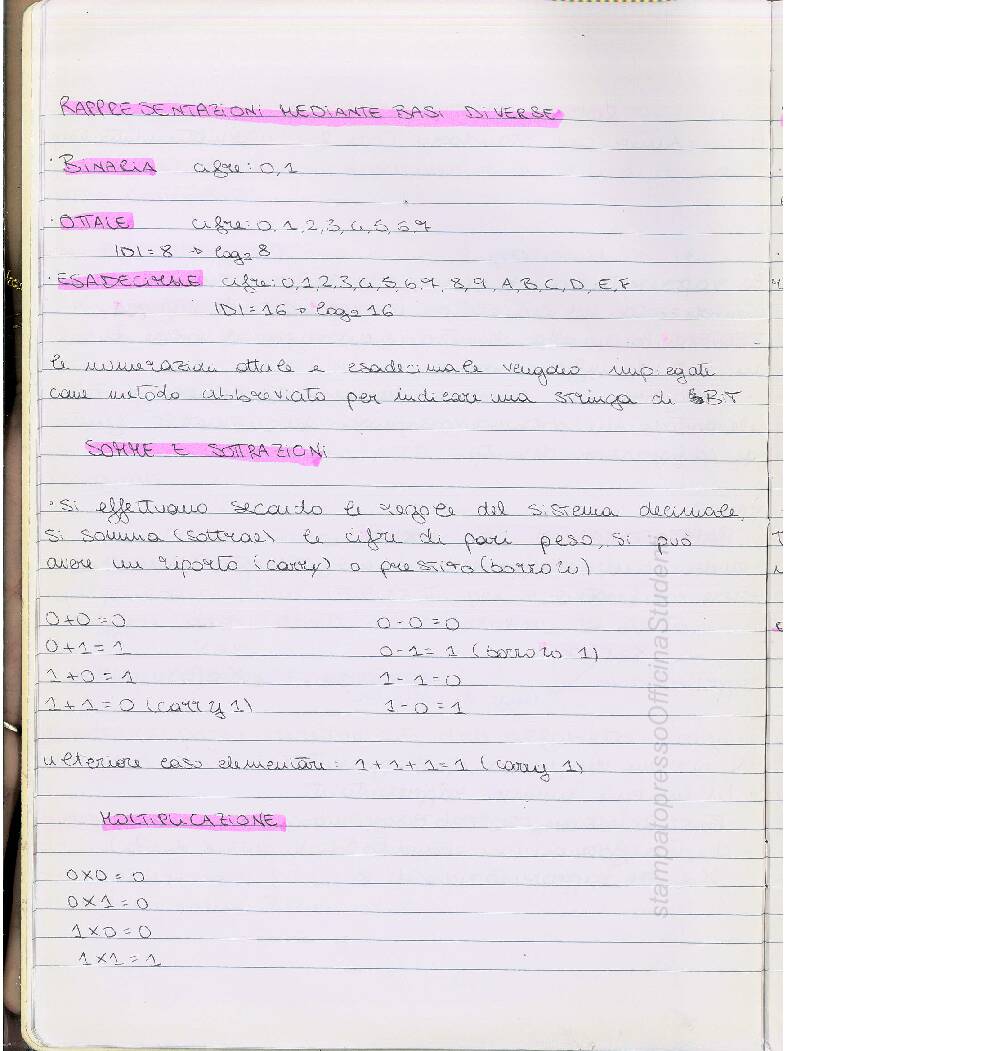 RAPPRESENTAZIONI MEDIANTE BASI DIVERSE
· BINARIA cifre: 0, 1
· OTTALE cifre: 0, 1, 2, 3, 4, 5, 6, 7
|D| = 8 → log₂ 8
· ESADECIMALE cifre: 0, 1, 2, 3, 4, 5, 6, 7, 8, 9, A, B, C, D, E, F
|D| = 16 → log₂ 16
le numerazioni ottale e esadecimale vengono impiegati
come metodo abbreviato per indicare una stringa di BIT
SOMME E SOTTRAZIONI
· Si effettuano secondo le regole del sistema decimale,
si somma (sottrae) le cifre di pari peso, si può
avere un riporto (carry) o prestito (borrow)
0+0=0 0-0=0
0+1=1 0-1=1 (borrow 1)
1+0=1 1-1=0
1+1=0 (carry 1) 1-0=1
ulteriore caso elementare: 1+1+1=1 (carry 1)
MOLTIPLICAZIONE
0x0=0
0x1=0
1x0=0
1x1=1
stampatopressoOfficinaStudenti